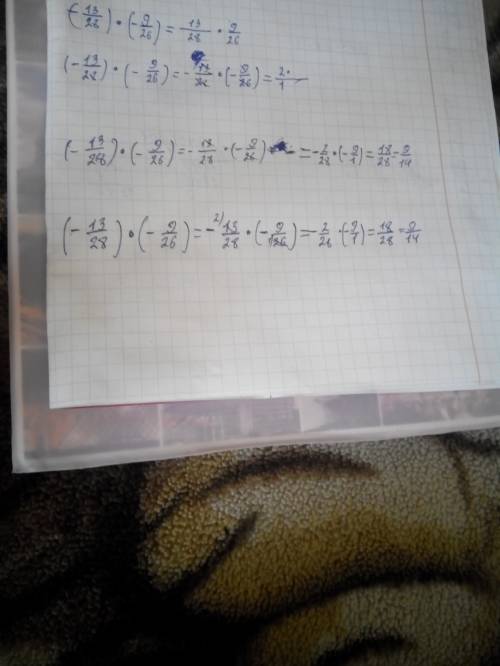 (-13/28) · (-9/26) = 13/28 · 9/26
(-13/28) · (-9/26) = - 13/28 · (-9/26) = 2·/1
(-13/28) · (-9/26) = - 13/28 · (-9/26) = -2/28 · (-9/1) = 18/28 = 9/14
(-13/28) · (-9/26) = - 2) 13/28 · (-9/26) = -2/28 · (-9/1) = 18/28 = 9/14